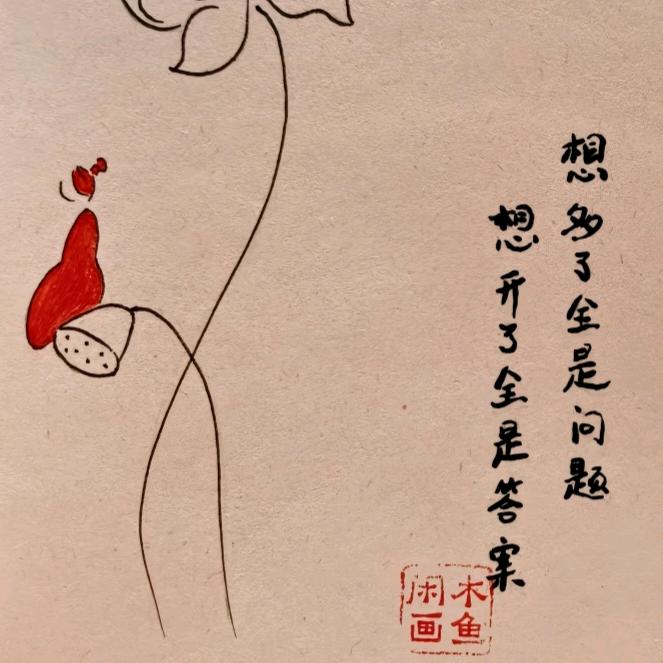 想多了全是问题
想开了全是答案
木鱼
闲画